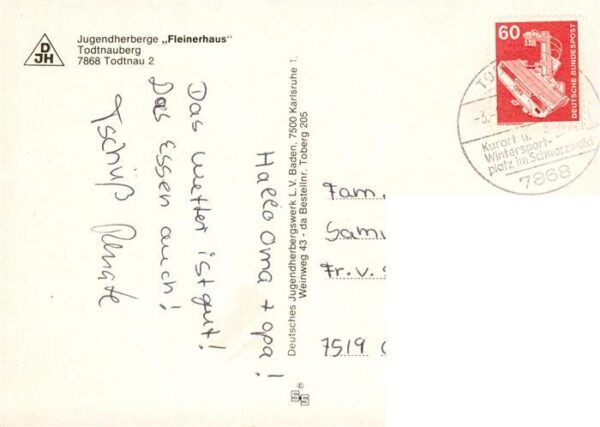 DJH
Jugendherberge „Fleinerhaus"
Todtnauberg
7868 Todtnau 2
Hallo Oma + Opa!
Das Wetter ist gut!
Das Essen auch!
Tschüß Renate
Deutsches Jugendherbergswerk L.V. Baden, 7500 Karlsruhe 1,
Weinweg 43 - da Bestellnr. Toberg 205
60
DEUTSCHE BUNDESPOST
Kurort u.
Wintersport-
platz im Schwarzwald
7868
Fam.
Fr. v.
7519